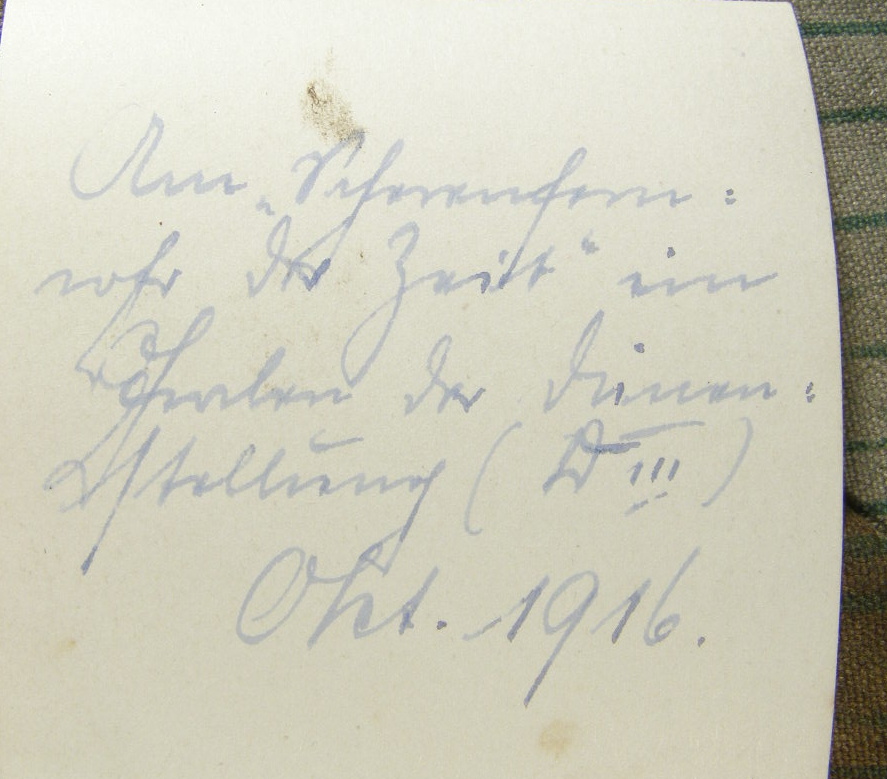 Am „Scherenfern:
rohr der Zeit“ im
der Dünen:
stellung (D III)
Okt. 1916.